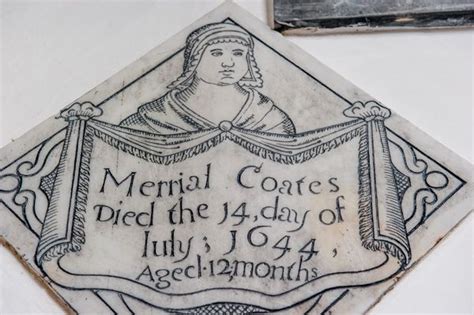 Merrial Coates
Died the 14, day of
Iuly; 1644,
Aged·12,months